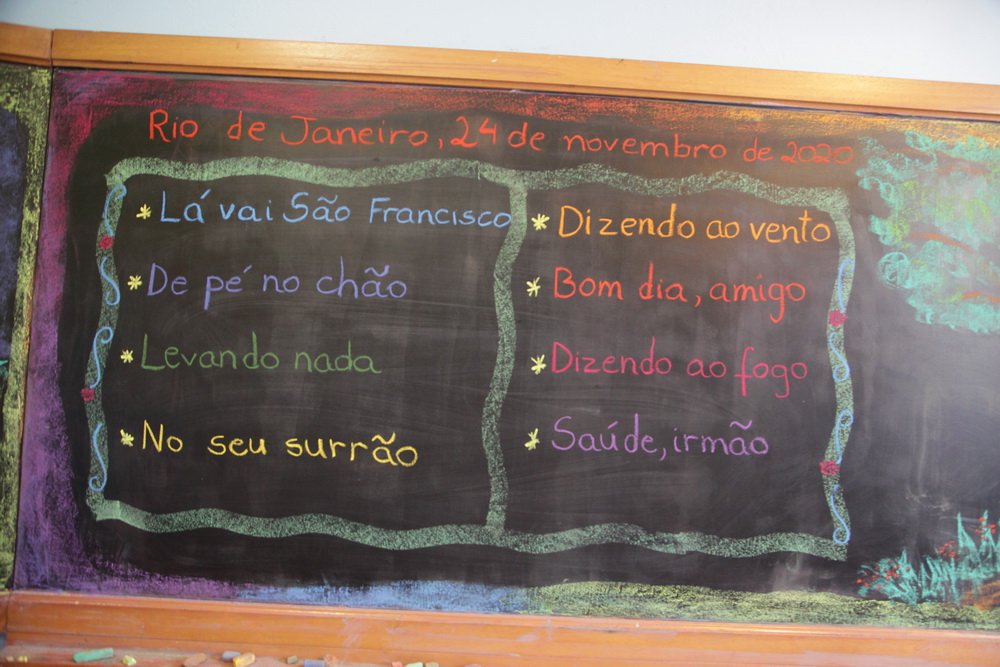 Rio de Janeiro, 24 de novembro de 2020
* Lá vai São Francisco
* De pé no chão
* Levando nada
* No seu surrão
* Dizendo ao vento
* Bom dia, amigo
* Dizendo ao fogo
* Saúde, irmão